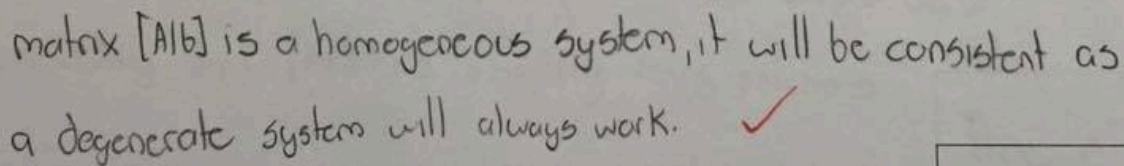 matrix [A|b] is a homogeneous system, it will be consistent as
a degenerate system will always work.